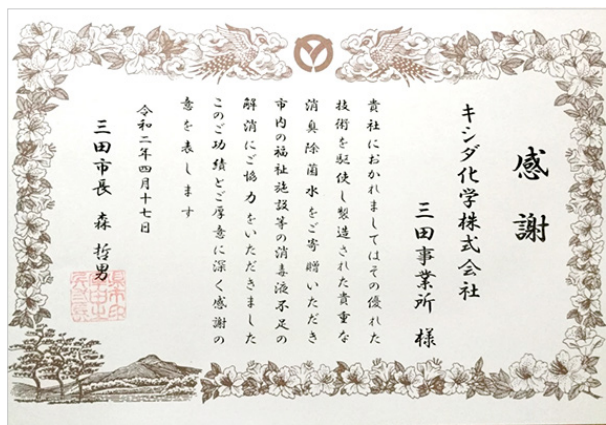 感謝
キシダ化学株式会社
三田事業所 様
貴社におかれましてはその優れた
技術を駆使し製造された貴重な
消臭除菌水をご寄贈いただき
市内の福祉施設等の消毒液不足の
解消にご協力をいただきました
このご功績とご厚意に深く感謝の
意を表します
令和二年四月十七日
三田市長 森 哲男